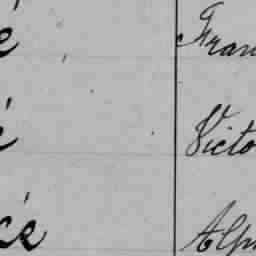 é Fran
é Victo
cé Alph